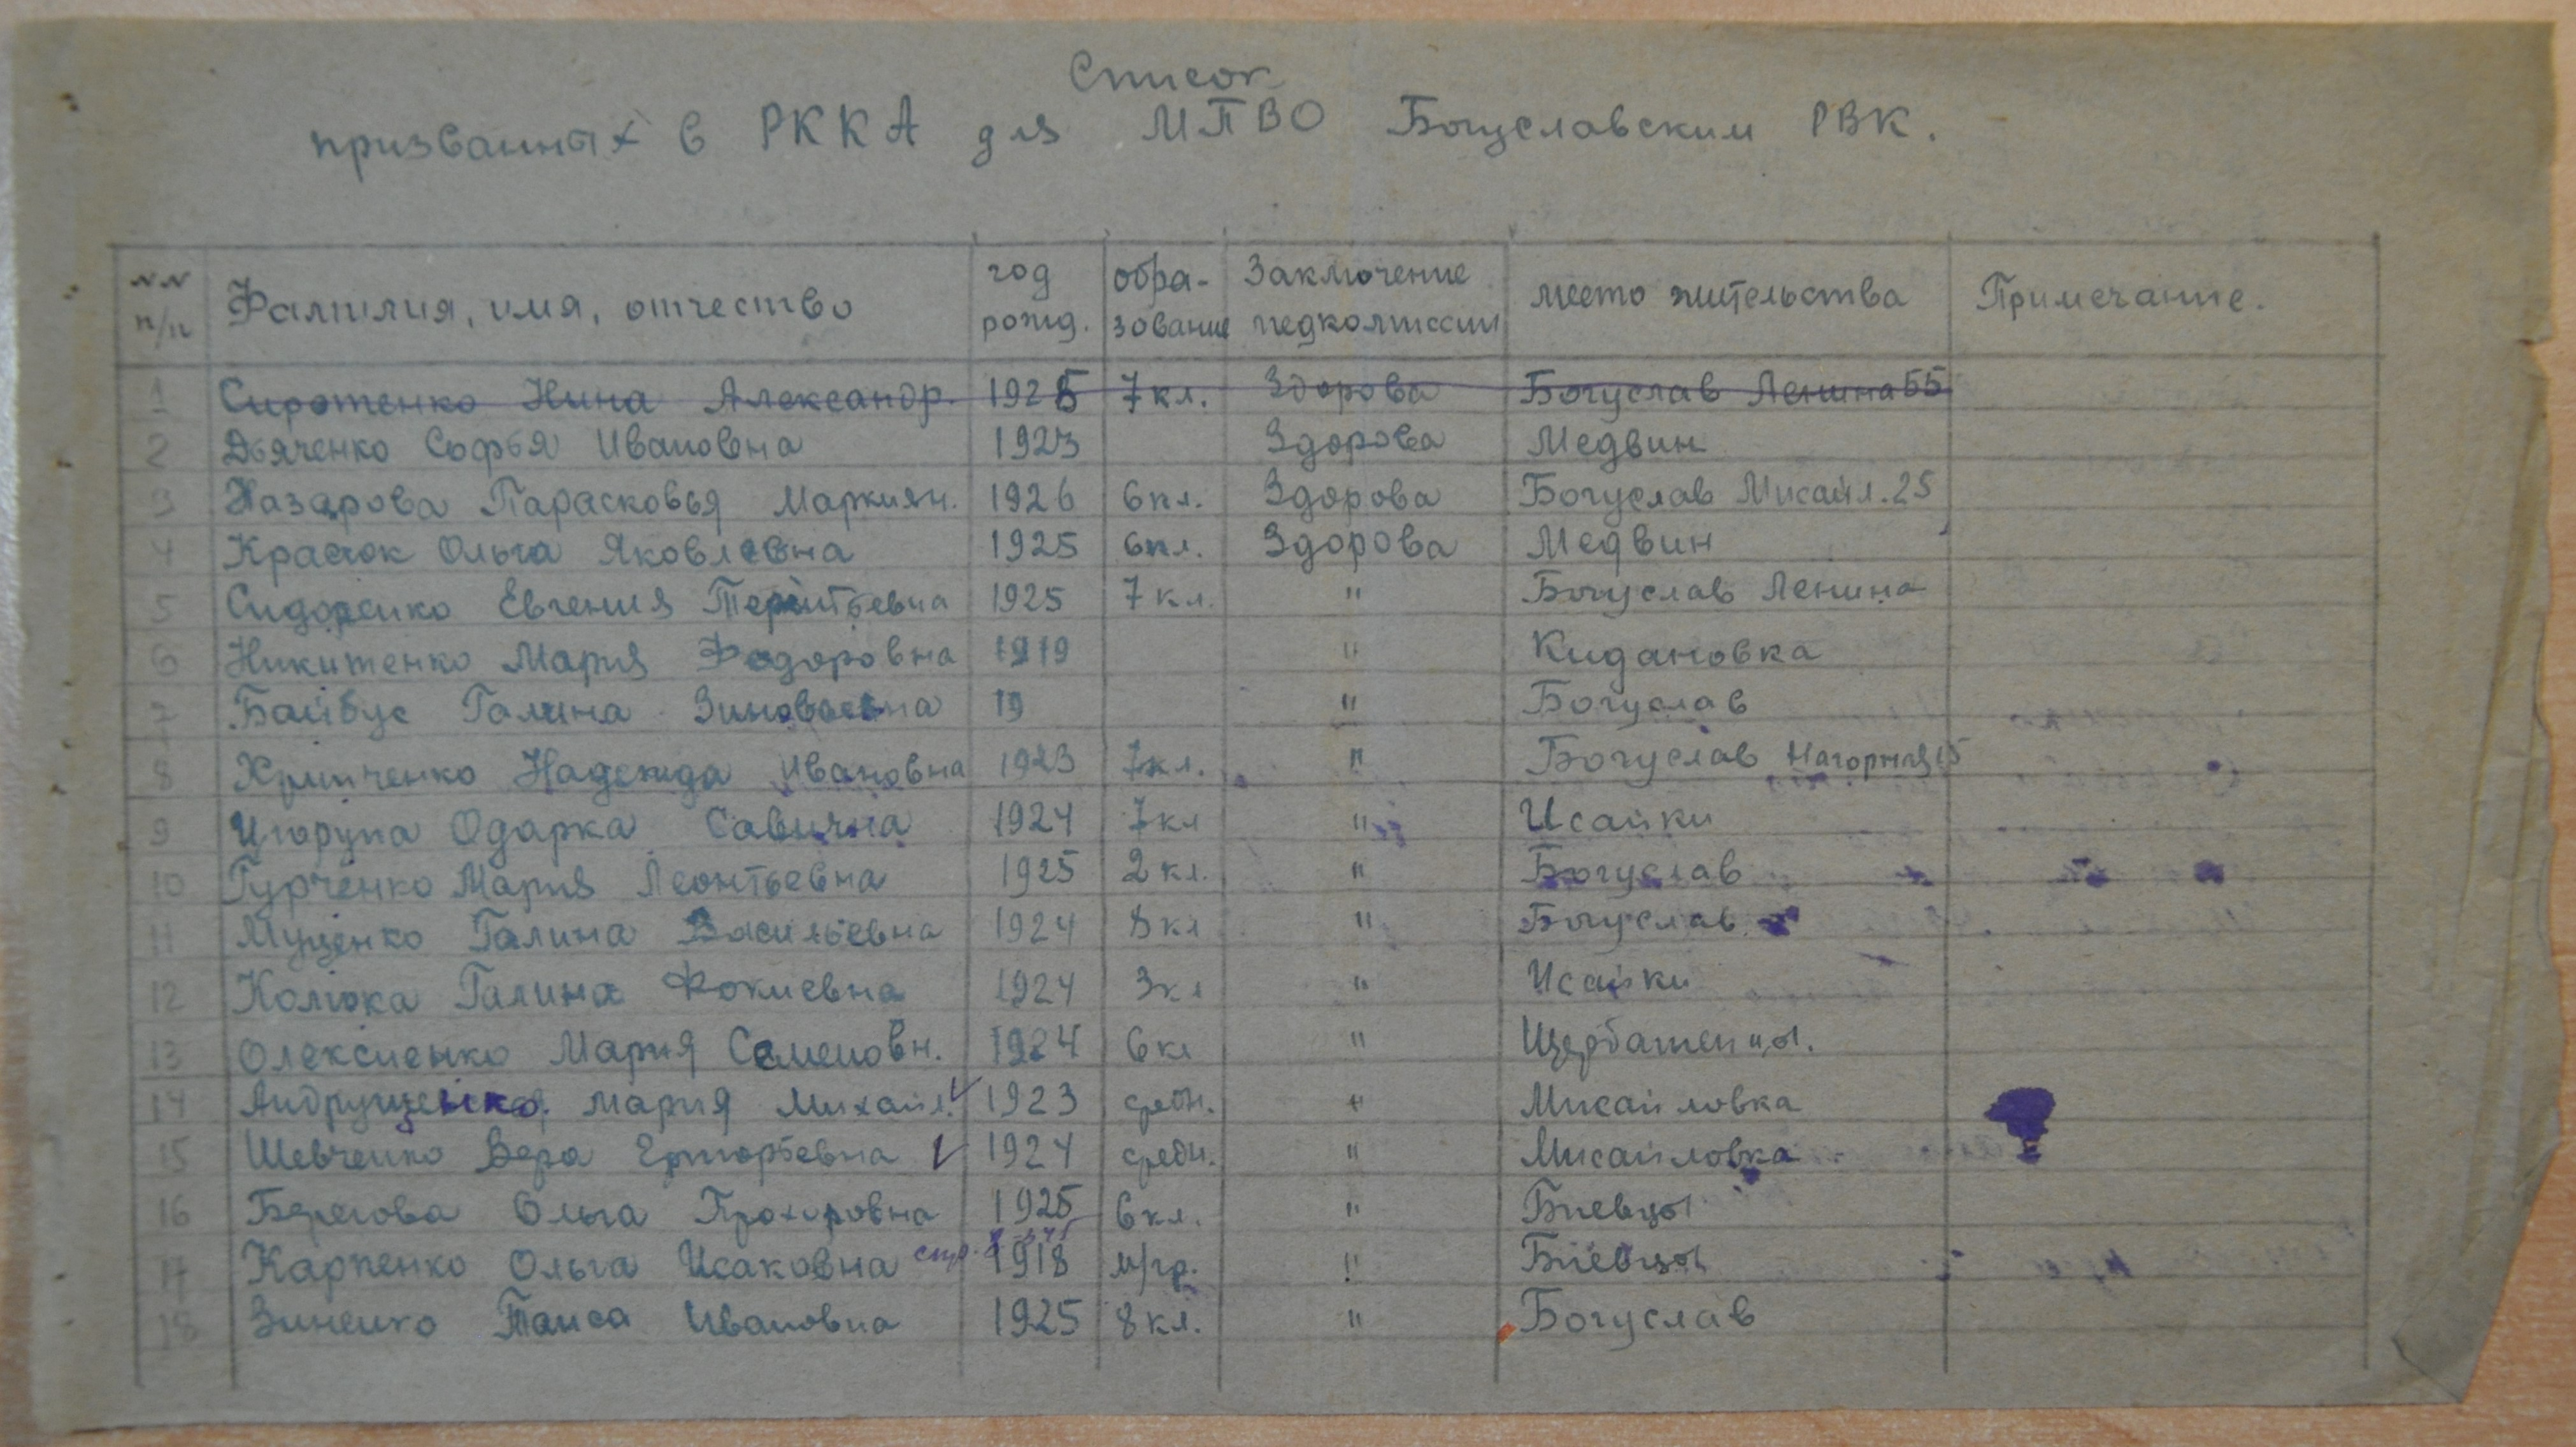 Список
призванных в РККА для МПВО Богуславским РВК.
№№ п/п Фамилия, имя, отчество год рожд. обра-зование Заключение медкомиссии место жительства Примечание.
1 Сиротенко Нина Александр. 1925 7 кл. Здорова Богуслав Ленина 55
2 Дьяченко Софья Ивановна 1923 Здорова Медвин
3 Назарова Парасковья Маркиян. 1926 6 кл. Здорова Богуслав Мисайл. 25
4 Красюк Ольга Яковлевна 1925 6 кл. Здорова Медвин
5 Сидоренко Евгения Терентьевна 1925 7 кл. " Богуслав Ленина
6 Никитенко Мария Федоровна 1919 " Кидановка
7 Байбус Галина Зиновьевна 19 " Богуслав
8 Надежда Ивановна 1923 7 кл. " Богуслав Нагорная 15
9 Одарка Савична 1924 7 кл " Исайки
10 Гурченко Мария Леонтьевна 1925 2 кл. " Богуслав
11 Муценко Галина Васильевна 1924 8 кл " Богуслав
12 Галина Фокиевна 1924 3 кл " Исайки
13 Олексиенко Мария Семеновн. 1924 6 кл " Щербатенцы.
14 Андрущенко Мария Михайл. 1923 средн. " Мисайловка
15 Шевченко Вера Григорьевна 1924 средн. " Мисайловка
16 Берегова Ольга Прохоровна 1925 6 кл. " Биевцы
17 Карпенко Ольга Исаковна 1918 м/гр. " Биевцы
18 Зиненко Таиса Ивановна 1925 8 кл. " Богуслав